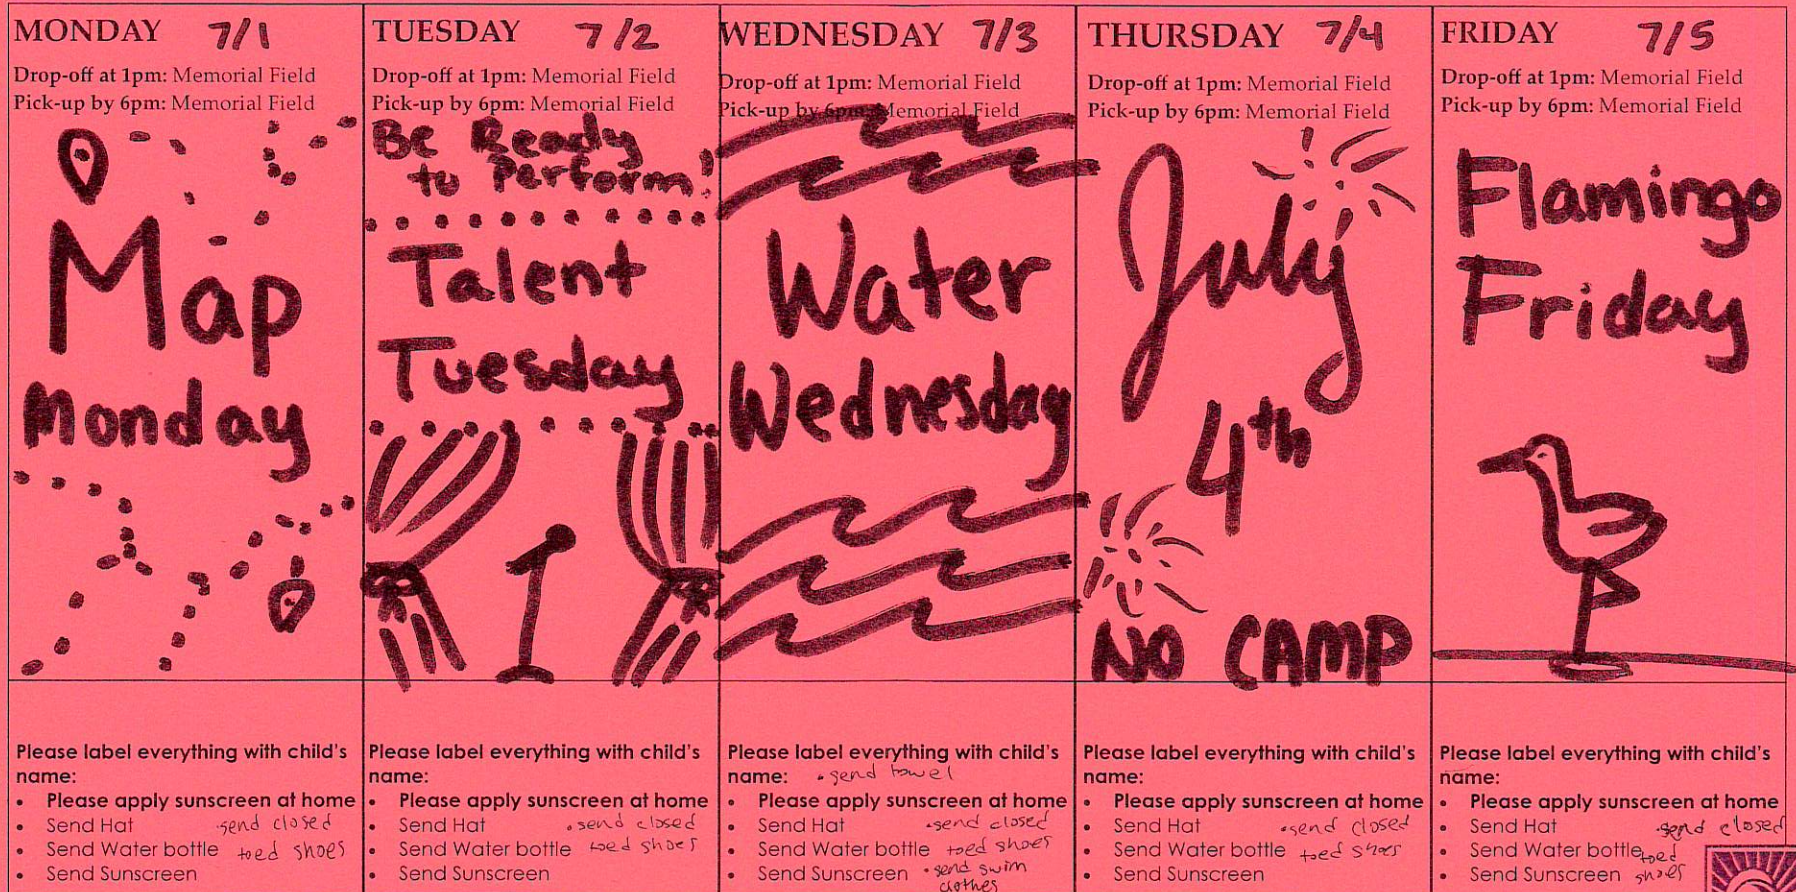 MONDAY 7/1
Drop-off at 1pm: Memorial Field
Pick-up by 6pm: Memorial Field
Map
Monday
Please label everything with child's
name:
• Please apply sunscreen at home
• Send Hat •send closed
• Send Water bottle toed shoes
• Send Sunscreen
TUESDAY 7/2
Drop-off at 1pm: Memorial Field
Pick-up by 6pm: Memorial Field
Be Ready
to Perform!
Talent
Tuesday
Please label everything with child's
name:
• Please apply sunscreen at home
• Send Hat •send closed
• Send Water bottle toed shoes
• Send Sunscreen
WEDNESDAY 7/3
Drop-off at 1pm: Memorial Field
Pick-up by 6pm: Memorial Field
Water
Wednesday
Please label everything with child's
name: •send towel
• Please apply sunscreen at home
• Send Hat •send closed
• Send Water bottle toed shoes
• Send Sunscreen •send swim
clothes
THURSDAY 7/4
Drop-off at 1pm: Memorial Field
Pick-up by 6pm: Memorial Field
July
4th
NO CAMP
Please label everything with child's
name:
• Please apply sunscreen at home
• Send Hat •send closed
• Send Water bottle toed shoes
• Send Sunscreen
FRIDAY 7/5
Drop-off at 1pm: Memorial Field
Pick-up by 6pm: Memorial Field
Flamingo
Friday
Please label everything with child's
name:
• Please apply sunscreen at home
• Send Hat •send closed
• Send Water bottle toed
• Send Sunscreen shoes